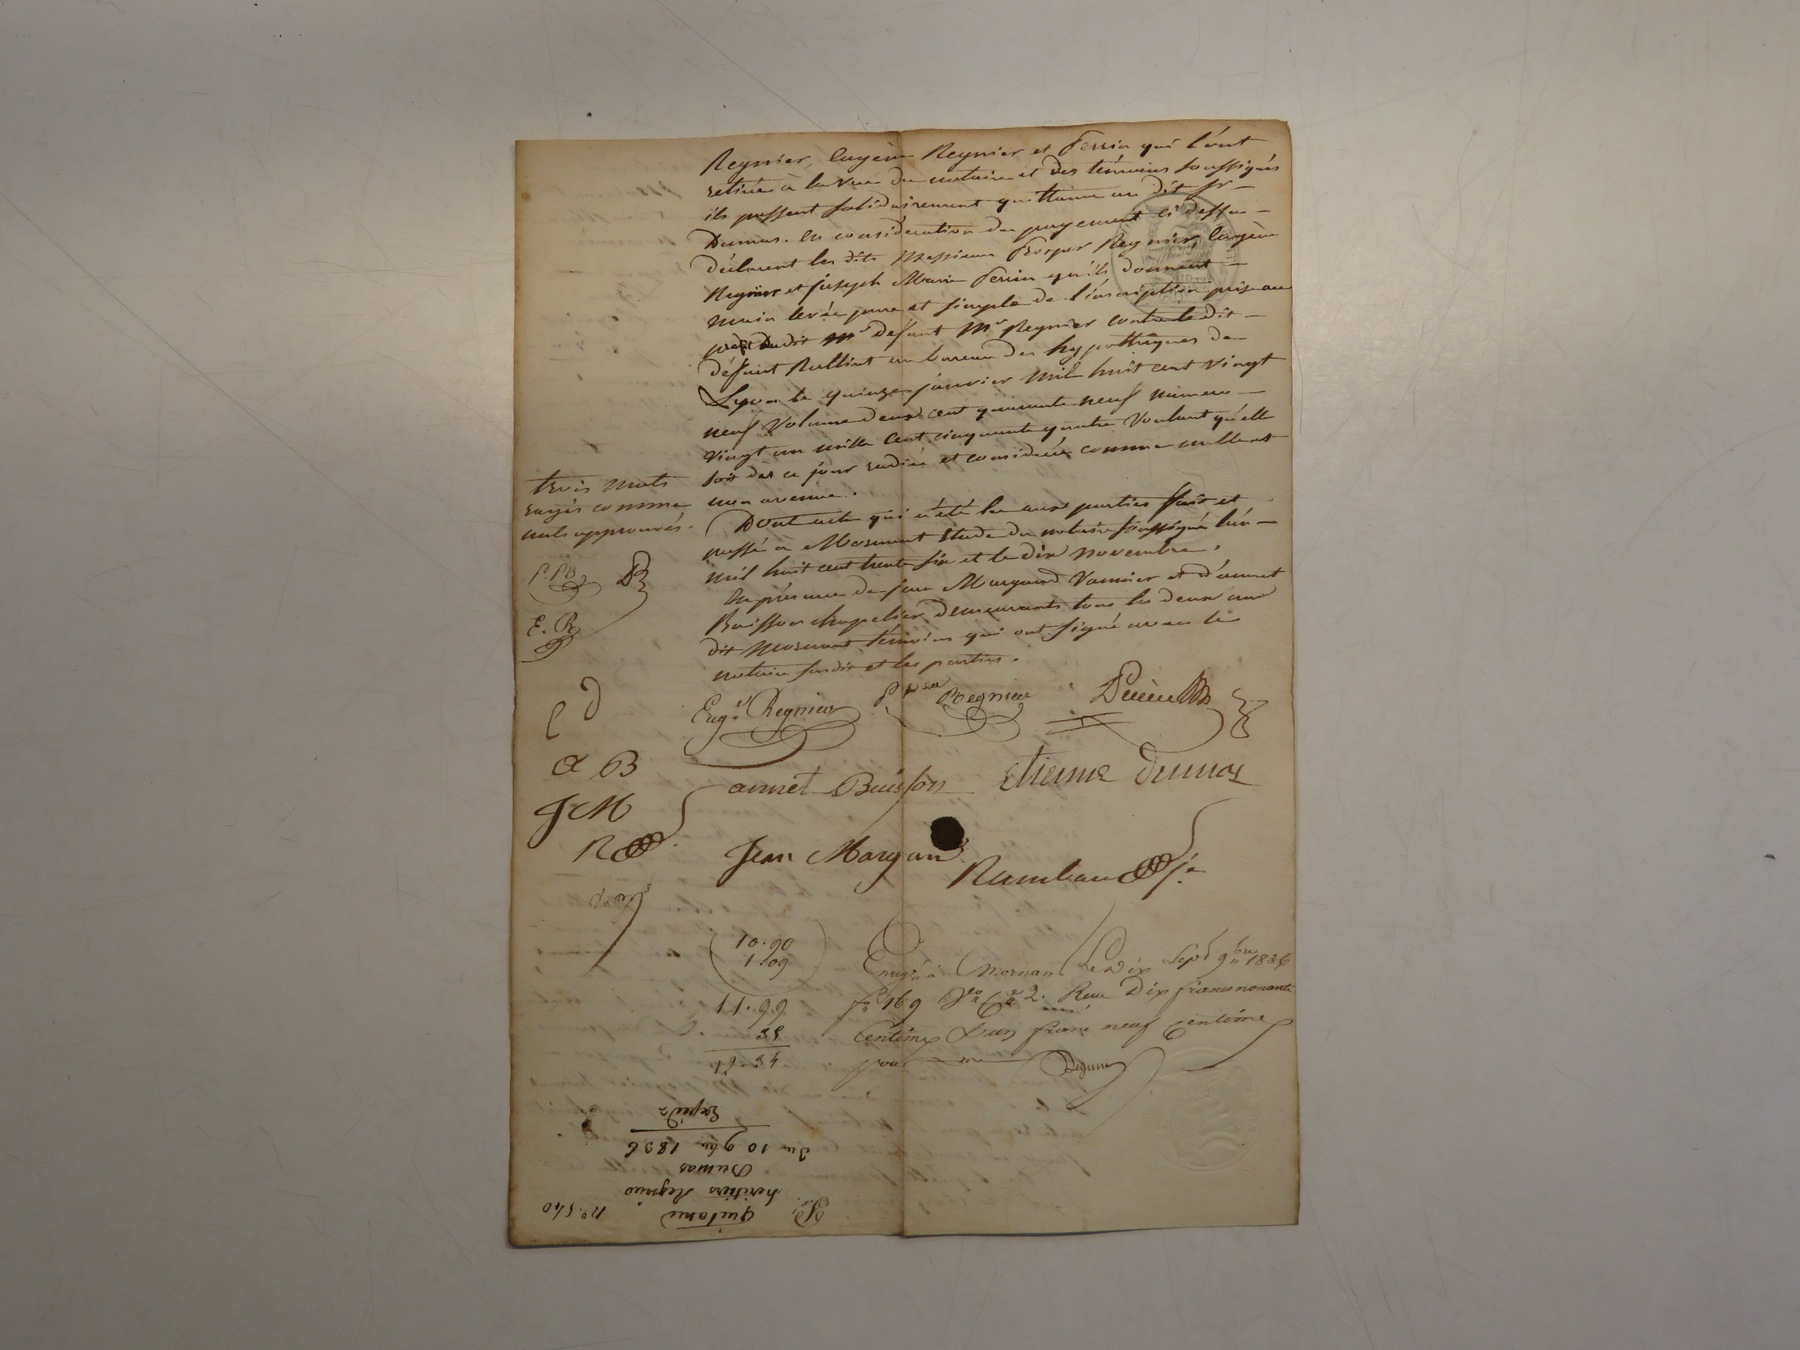 Regnier, Eugène Regnier et Perrin qui l'ont
retirée à la vue du notaire et des témoins soussignés
ils passent solidairement quittance au dit Sr
Dumas. En considération du payement ci dessus
déclarent les dits Messieurs Prosper Regnier, Eugène
Regnier et Joseph Marie Perrin qu'ils donnent
main levée pure et simple de l'inscription prise au
profit dudit défunt Mr Regnier contre le dit
défunt Rullint au bureau des hypothèques de
Lyon le quinze janvier mil huit cent vingt
neuf volume deux cent quarante neuf numero
vingt un mille cent cinquante quatre voulant qu'elle
soit dès ce jour radiée et considérée comme nulle et
non avenue.
trois mots
rayés comme
nuls approuvés.
Dont acte qui a été lu aux parties fait et
passé à Mornant Etude du notaire soussigné l'an
mil huit cent trente six et le dix novembre.
En présence de Jean Margand Vannier et d'annet
Buisson chapelier, demeurants tous les deux au
dit Mornant, témoins qui ont signé avec le
notaire susdit et les parties.
E. R
Eugé Regnier Regnier Perrin
a B
annet Buisson Etienne Dumas
J M
Jean Margand
Rambaud
10.90
1.09
11.99
Enregé à Mornant le Dix Sept 9bre 1836
fo 169 Vo Ce 2. Reçu Dix francs nonante
centimes Plus un franc neuf centimes
pour
quitance
héritiers Regnier
Dumas
du 10 9bre 1836
Expédr
no. 540